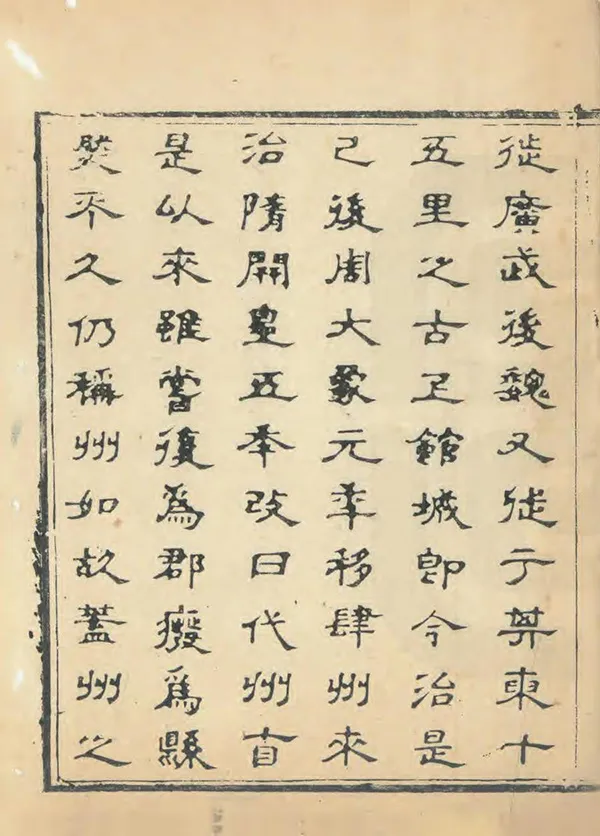 徙廣武後魏又徙于其東十
五里之古上館城即今治是
已後周大象元年移肆州來
治隋開皇五年改曰代州自
是以來雖嘗復為郡廢為縣
然不久仍稱州如故蓋州之